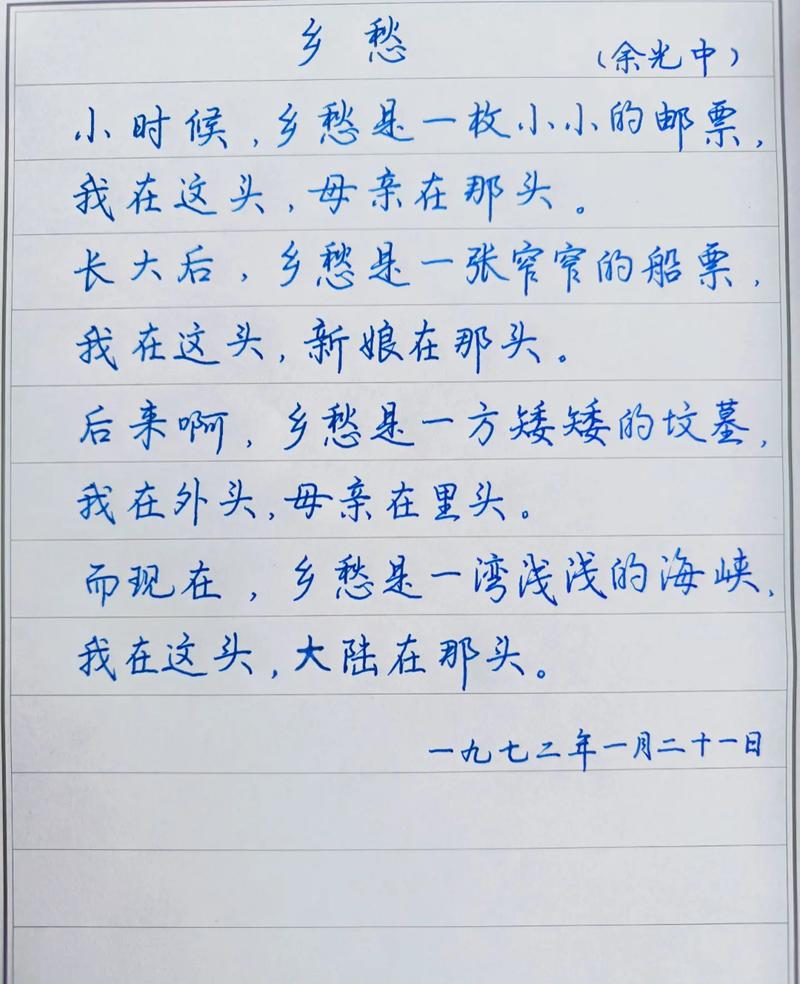 乡愁
（余光中）
小时候，乡愁是一枚小小的邮票，
我在这头，母亲在那头。
长大后，乡愁是一张窄窄的船票，
我在这头，新娘在那头。
后来啊，乡愁是一方矮矮的坟墓，
我在外头，母亲在里头。
而现在，乡愁是一湾浅浅的海峡，
我在这头，大陆在那头。
一九七二年一月二十一日